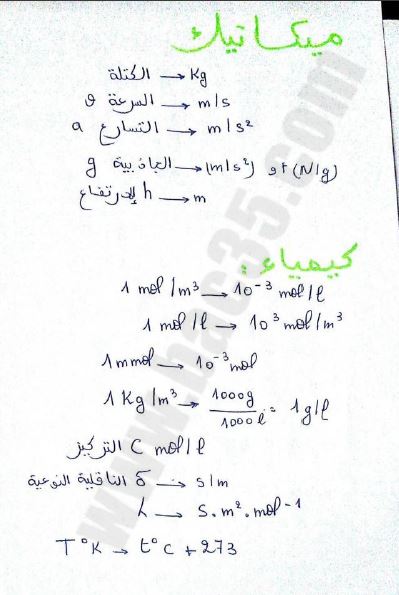 ميكانيك
الكتلة → Kg
السرعة v → m/s
التسارع a → m/s²
الجاذبية g → (m/s²) و r (N/g)
الإرتفاع h → m
كيمياء :
1 mol/m³ → 10⁻³ mol/l
1 mol/l → 10³ mol/m³
1 mmol → 10⁻³ mol
1 Kg/m³ → 1000g/1000l = 1g/l
التركيز C mol/l
الناقلية النوعية δ → s/m
λ → S.m².mol⁻¹
T°K → t°C + 273
www.bac35.com